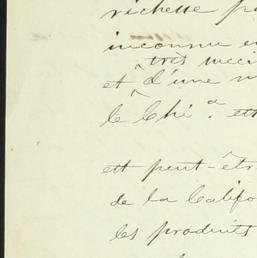 richesse p
inconnu e
très succi
et d'une m
le Chi a. est
est peut-êtr
de la Califo
les produits